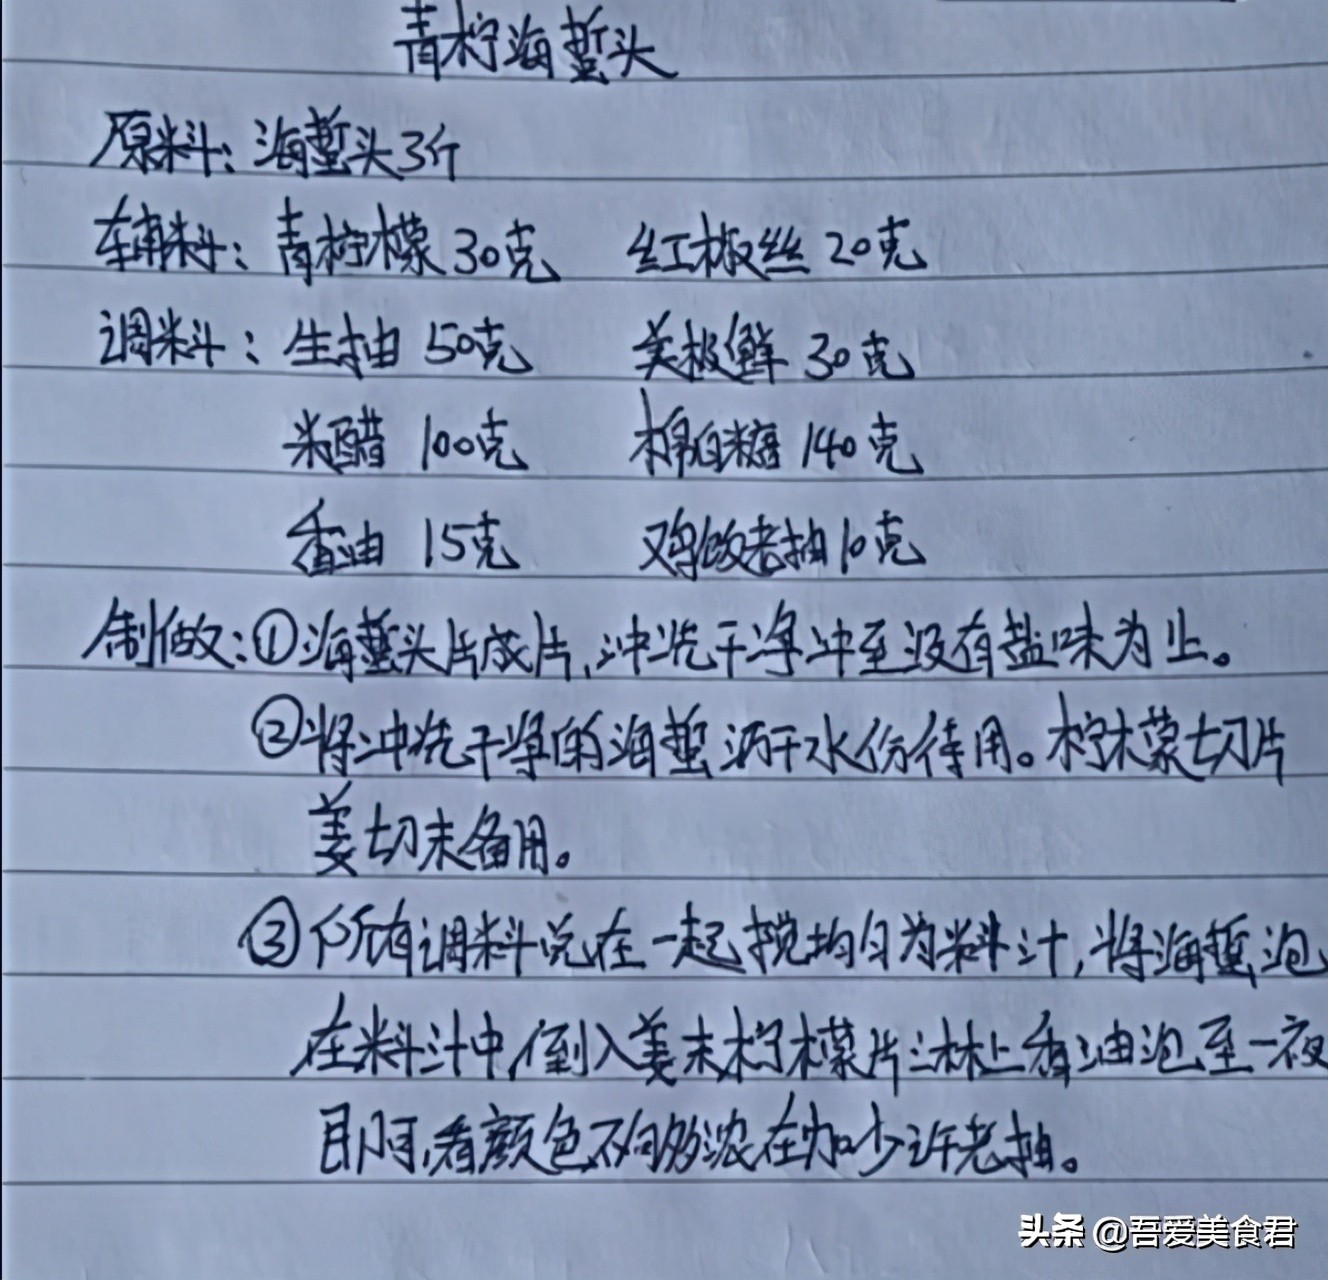 青柠海蜇头
原料：海蜇头3斤
辅料：青柠檬30克 红椒丝20克
调料：生抽50克 美极鲜30克
米醋100克 棉白糖140克
香油15克 鸡饭老抽10克
制做：①海蜇头片成片，冲洗干净冲至没有盐味为止。
②将冲洗干净的海蜇沥干水份待用。柠檬切片
姜切末备用。
③所有调料兑在一起搅均匀为料汁，将海蜇泡
在料汁中，倒入姜末柠檬片淋上香油泡至一夜
即可，看颜色不够浓在加少许老抽。
头条 @吾爱美食君